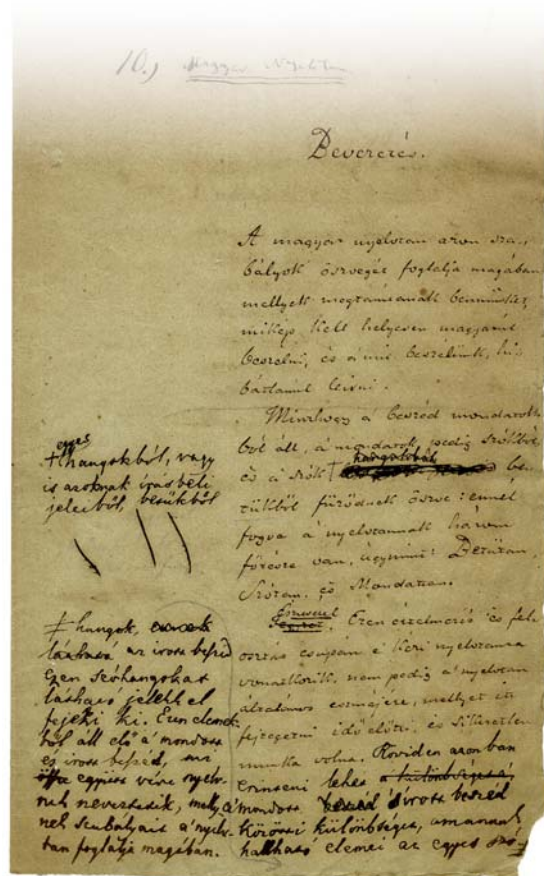 10.) Magyar Nyelvtan
Bevezetés.
A magyar nyelvtan azon sza-
bályok öszvegét foglalja magában
mellyek megtanítanak bennünket,
mikép kell helyesen magyarúl
beszelni, és a mit beszélünk, hi-
bátlanúl leirni.
Minthogy a beszéd mondatok-
ból áll, a mondatok pedig szókból,
hangokból
és a szók † be-
tükből füződnek öszve: ennél
fogva a' nyelvtannak három
főrésze van, úgymint: Betütan,
Szótan és Mondattan.
Ezen czímezés és fel-
osztás csupán e' kézi nyelvtanra
vonatkozik, nem pedig a' nyelvtan
általános eszméjére, mellyet itt
fejtegetni idő előtti és sikeretlen
munka volna. Röviden azonban
érinteni lehet a különbséget
a' mondott beszéd 's írott beszéd
közötti különbséget, amannak
hallható elemei az egyes szó-
egyes
† hangokból, vagy
is azoknak irásbeli
jeleiből, betükből
‡ hangok,
az irott beszéd
Ezen szóhangokat
látható jelekkel
fejezi ki. Ezen elemek-
ből áll elő a' mondott
és irott beszéd, mi
együtt véve nyelv-
nek neveztetik, mely-
nek szabályait a' nyelv-
tan foglalja magában.